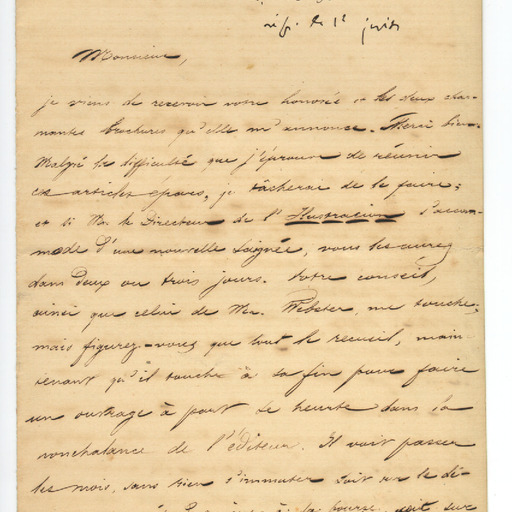 rép. le 1r juin
Monsieur,
je viens de recevoir votre honorée et les deux char-
mantes brochures qu'elle m'annonce. Merci bien.
Malgré la difficulté que j'éprouve de réunir
ces articles epars, je tâcherai de le faire;
et si Mr. le Directeur de l'Ilustracion s'accom-
mode d'une nouvelle saignée, vous les aurez
dans deux ou trois jours. Votre conseil,
ainsi que celui de Mr. Webster, me touche;
mais figurez-vous que tout le recueil, main-
tenant qu'il touche à sa fin pour faire
un outrage à part se heurte dans la
nonchalance de l'éditeur. Il voit passer
les mois, sans rien s'immuter soit sur le di-
à la bourse, soit sur